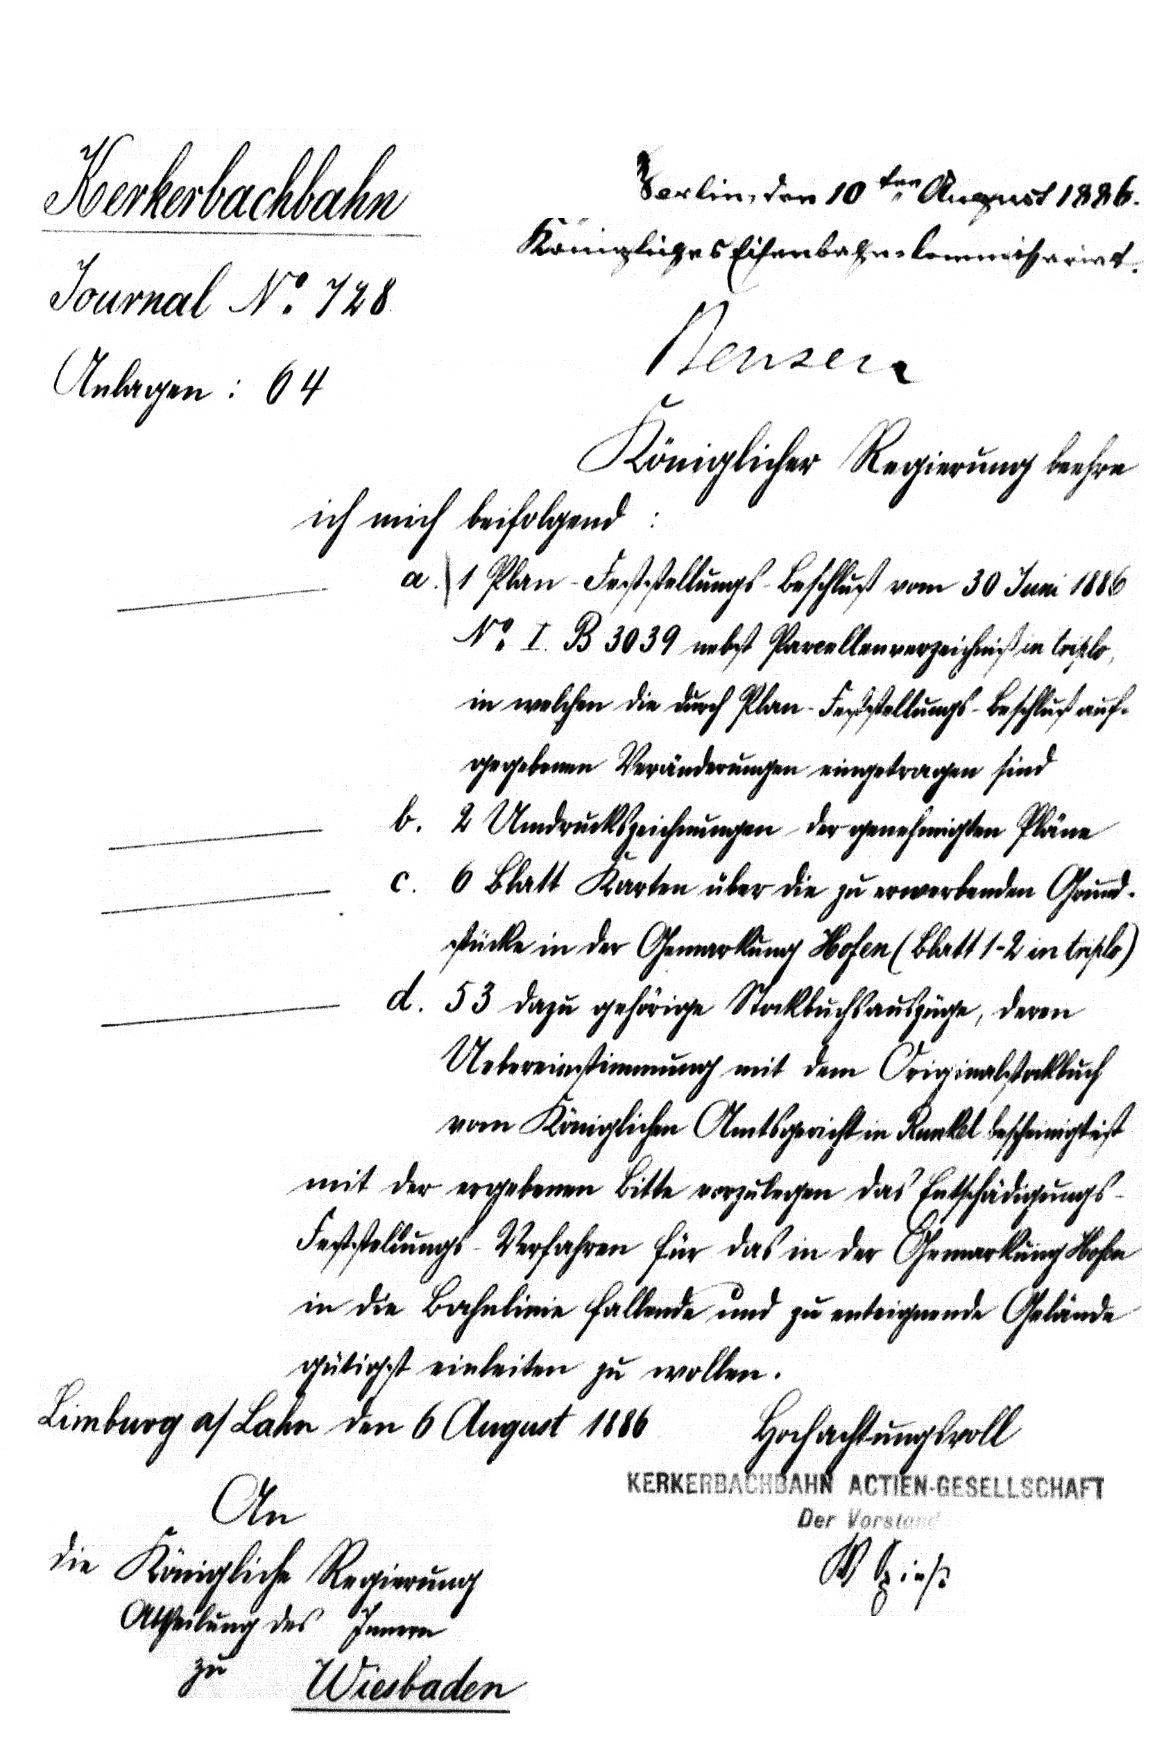 Kerkerbachbahn
Journal No. 728
Anlagen : 64
Berlin, den 10ten August 1886.
Königliches Eisenbahn-Commissariat.
Bensen
Königlicher Regierung beehre
ich mich beifolgend :
a. 1 Plan-Feststellungs-Beschluß vom 30 Juni 1886
No. I. B 3039 nebst Parcellenverzeichniß in triplo,
in welchen die durch Plan-Feststellungs-Beschluß auf-
gegebenen Veränderungen eingetragen sind
b. 2 Umdruckszeichnungen der genehmigten Pläne
c. 6 Blatt Karten über die zu erwerbenden Grund-
stücke in der Gemarkung Hofen (Blatt 1-2 in triplo)
d. 53 dazu gehörige Stockbuchsauszüge, deren
Uebereinstimmung mit dem Originalstockbuch
vom Königlichen Amtsgericht in Runkel bescheinigt ist
mit der ergebenen Bitte vorzulegen das Entschädigungs-
Feststellungs-Verfahren für das in der Gemarkung Hofen
in die Bahnlinie fallende und zu enteignende Gelände
gütigst einleiten zu wollen.
Limburg a/ Lahn den 6 August 1886
Hochachtungsvoll
KERKERBACHBAHN ACTIEN-GESELLSCHAFT
Der Vorstand
W Spieß
An
die Königliche Regierung
Abtheilung des Innern
zu Wiesbaden